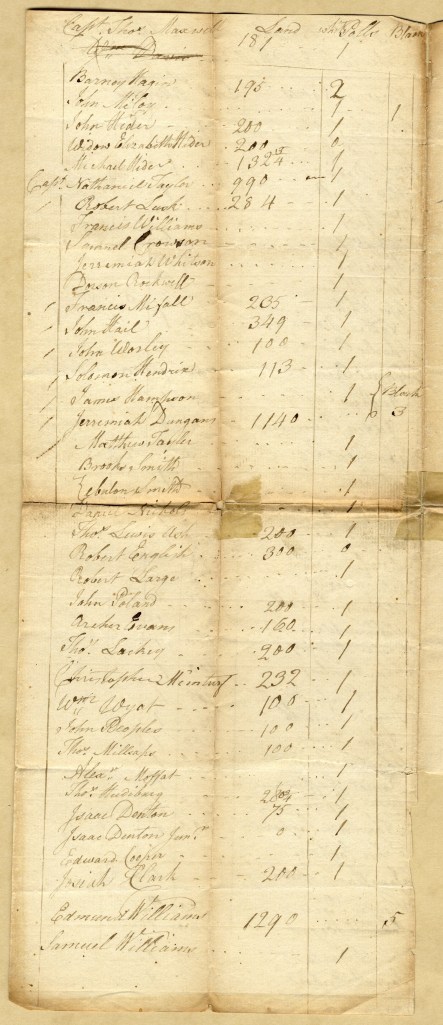 Capt. Thos. Maxwell Land whi Polls Black
Wm. Davis 181 1
Barney 195 2
John McCoy 1 1
John Hider 200 1
Widow Elizabeth Hider 200 0
Michael Hider 1324 1
Capt. Nathaniel Taylor 990 1
Robert Lusk 284 1
Francis Williams 1
Samuel Crowson
Jerremiah Whitson 1
Rockwell 1
Francis 235 1
John Hail 349 1
John Worley 100 1
Solomon Hendrix 113 1
James Hampton 1 Black
Jerremiah Dungans 1140 0 3
Matthew Taylor 1
Brooks Smith 1
Zebulon Smith 1
1
Thos. Lewis 200 1
Robert English 300 0
Robert Large 1
John Poland 200 1
Archer Evans 160 1
Thos. Lackey 200 1
Christopher 232 1
Wm. Wyat 100 1
John Peoples 100 1
Thos. Millsaps 100 1
Alexr. Moffat 1
Thos. Hudiburg 1
Isaac Denton 75 1
Isaac Denton Junr. 0 1
Edward Cooper 1
Josiah Clark 200 1
Edmund Williams 1290 5
Samuel Williams 1